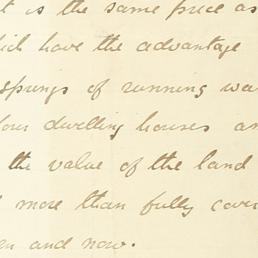 t is the same price as
hich have the advantage
springs of running wa
dwelling houses an
the value of the land
more than fully cove
en and now.